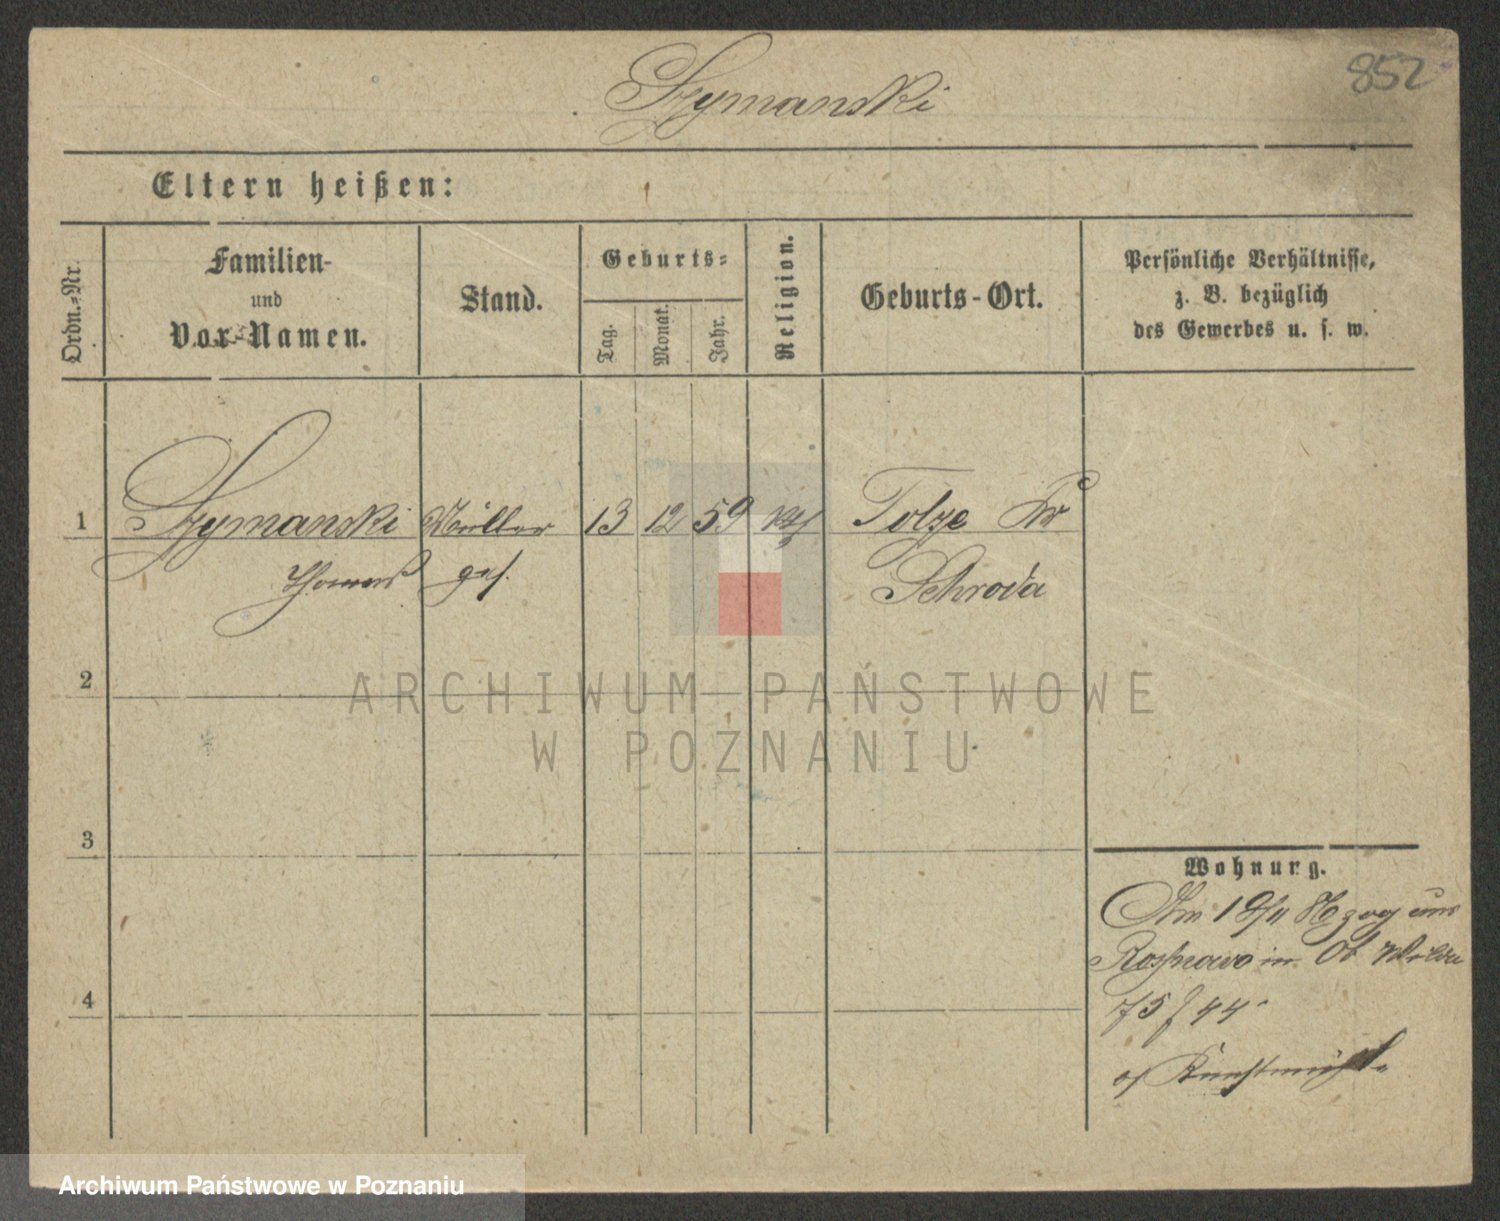 852
Szymanski
Eltern heißen:
Ordn.-Nr.
Familien-
und
Vor-Namen.
Stand.
Geburts-
Tag.
Monat.
Jahr.
Religion.
Geburts-Ort.
Persönliche Verhältnisse,
z. B. bezüglich
des Gewerbes u. s. w.
1 Szymanski Müller 13 12 59 kth Tolze Kr
Thomas ges.
Schroda
2
3
4
ARCHIWUM PAŃSTWOWE
W POZNANIU
Wohnung.
Am 1 zog
in Ob
75 44
Archiwum Państwowe w Poznaniu